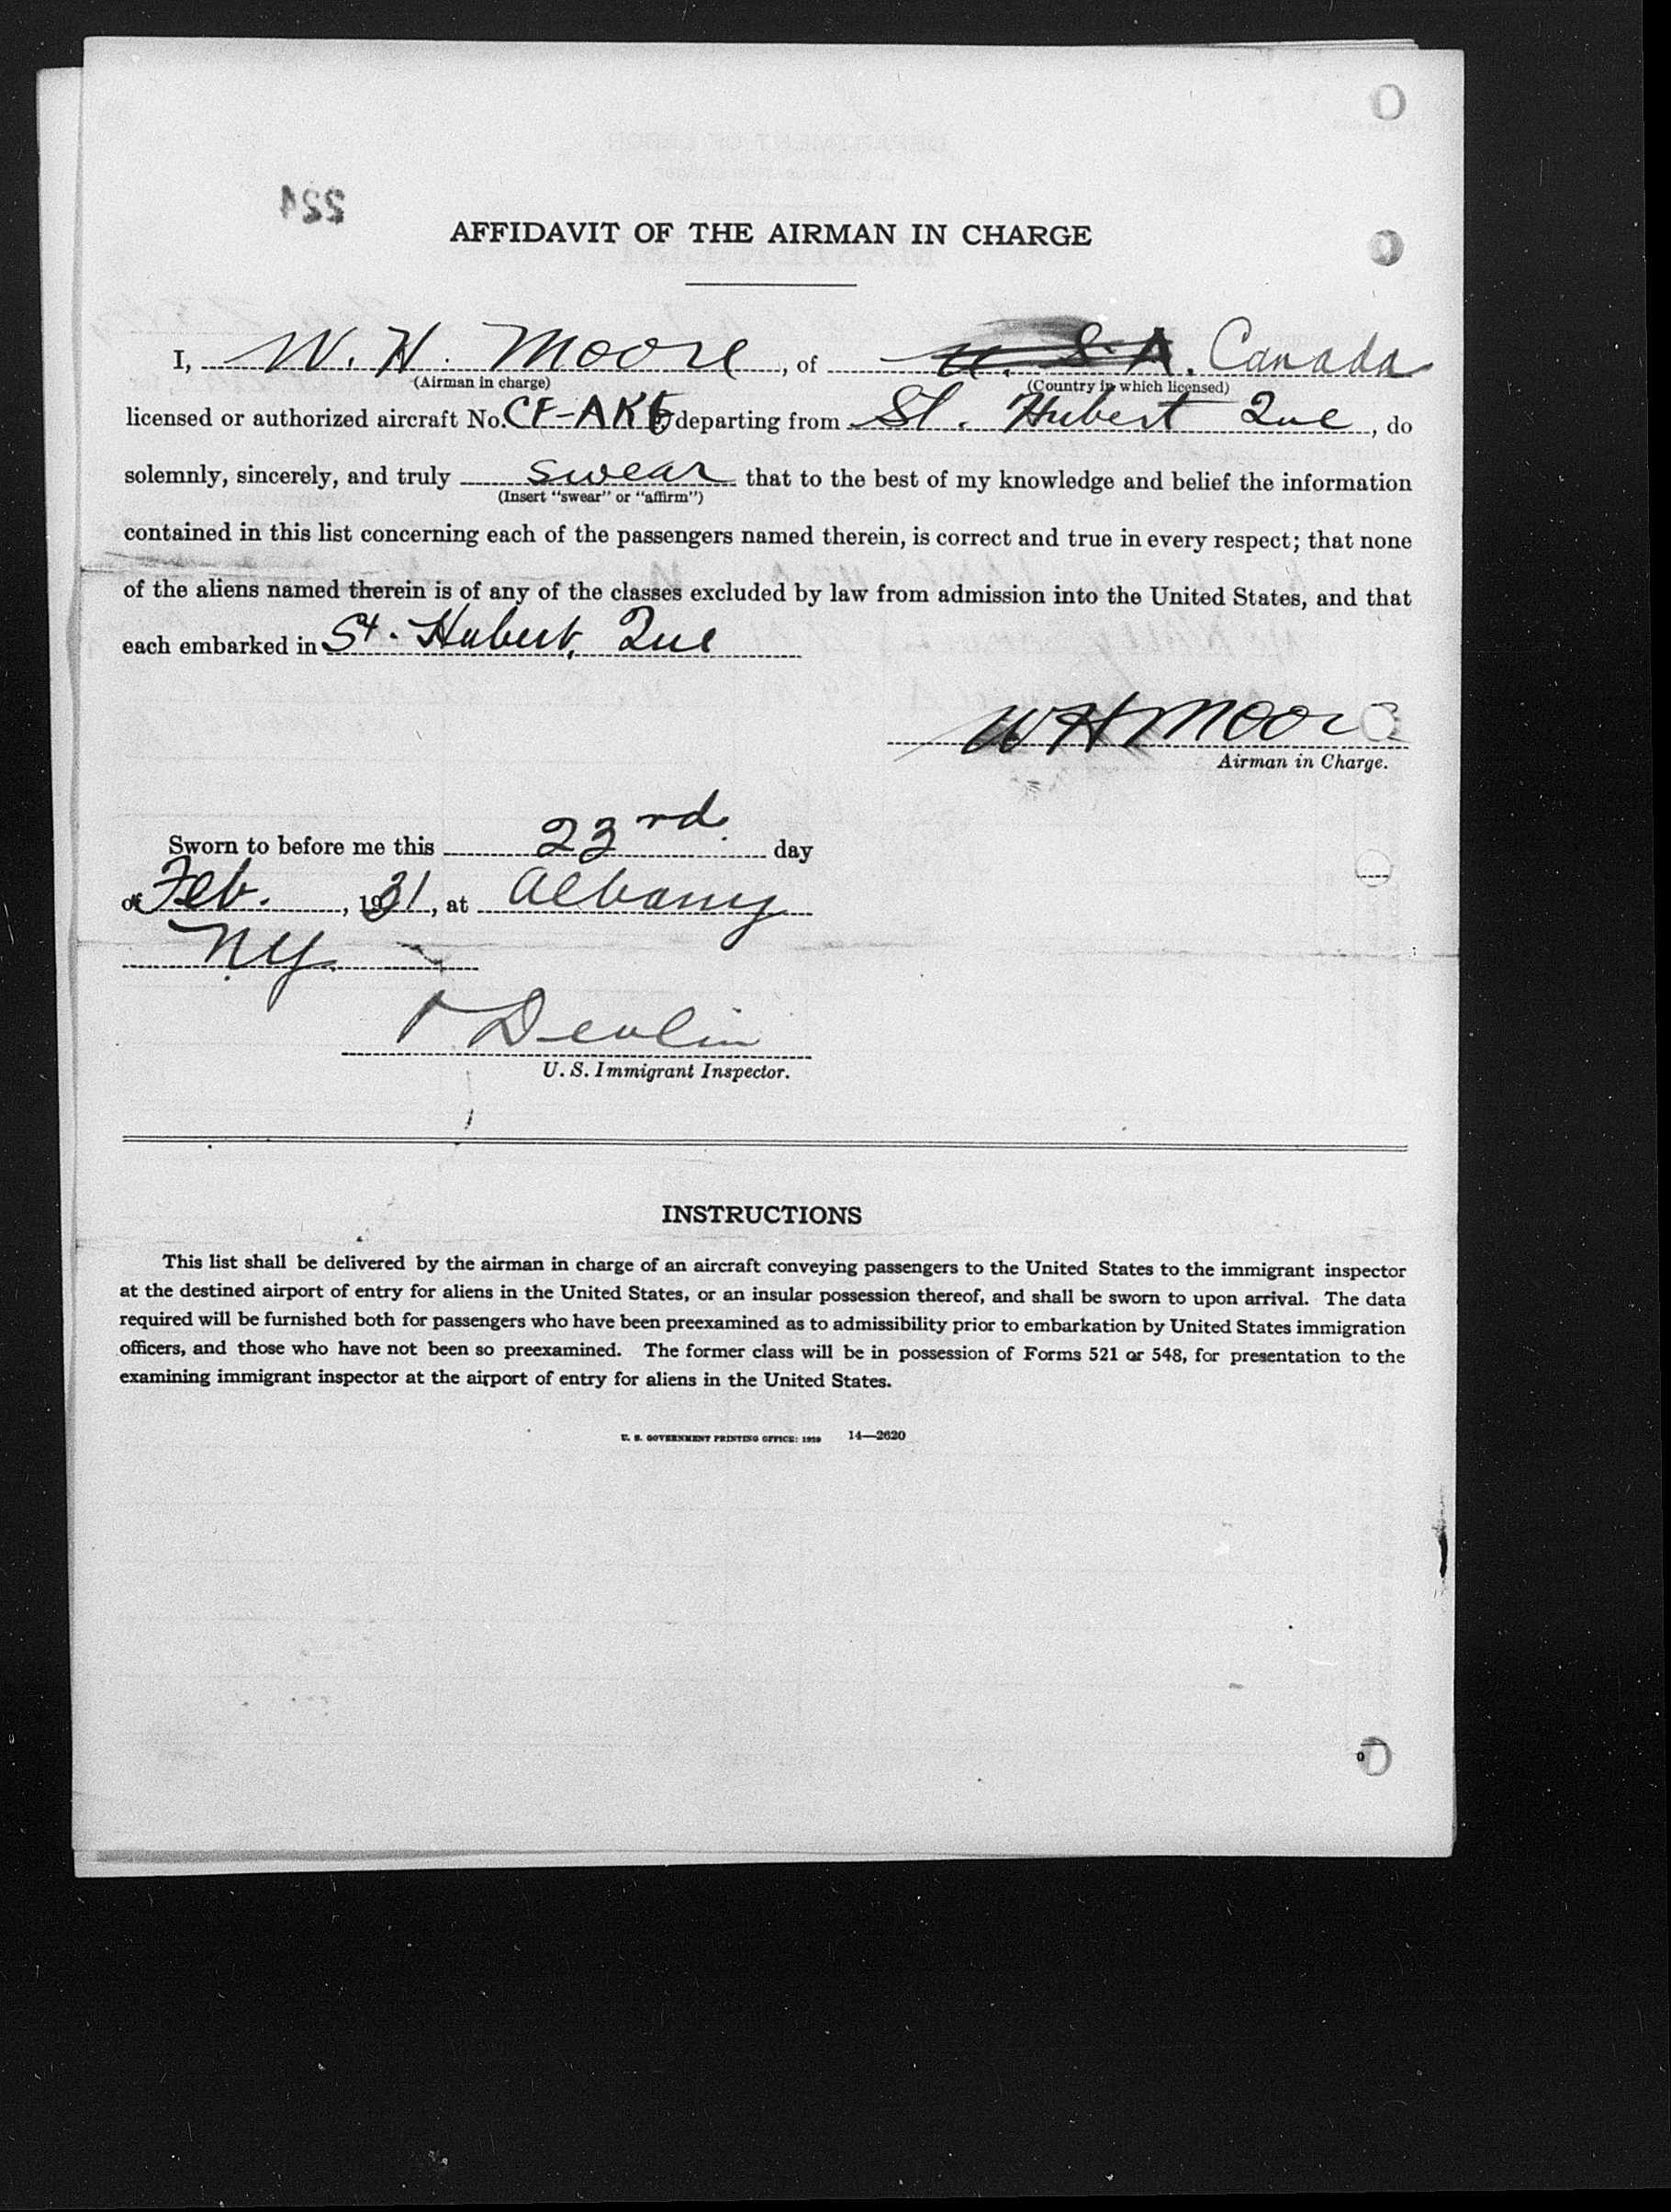 AFFIDAVIT OF THE AIRMAN IN CHARGE
I, W. H. Moore, of U. S. A. Canada
(Airman in charge) (Country in which licensed)
licensed or authorized aircraft No. departing from St. Hubert Que, do
solemnly, sincerely, and truly swear that to the best of my knowledge and belief the information
(Insert "swear" or "affirm")
contained in this list concerning each of the passengers named therein, is correct and true in every respect; that none
of the aliens named therein is of any of the classes excluded by law from admission into the United States, and that
each embarked in St. Hubert, Que
W H Moore
Airman in Charge.
Sworn to before me this 23rd day
of Feb. , 1931, at Albany
N.Y.
Devlin
U. S. Immigrant Inspector.
INSTRUCTIONS
This list shall be delivered by the airman in charge of an aircraft conveying passengers to the United States to the immigrant inspector
at the destined airport of entry for aliens in the United States, or an insular possession thereof, and shall be sworn to upon arrival. The data
required will be furnished both for passengers who have been preexamined as to admissibility prior to embarkation by United States immigration
officers, and those who have not been so preexamined. The former class will be in possession of Forms 521 or 548, for presentation to the
examining immigrant inspector at the airport of entry for aliens in the United States.
U. S. GOVERNMENT PRINTING OFFICE: 1929 14—2620